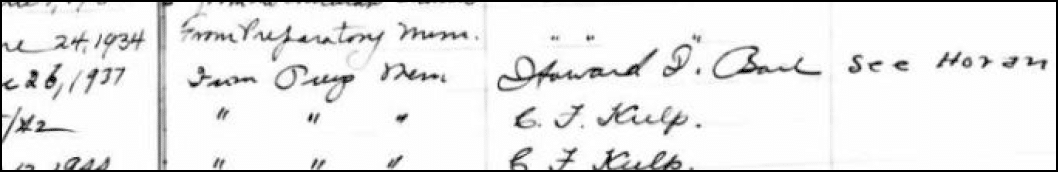 24, 1934 From Preparatory Mem. " " "
26, 1937 From Prep Mem Howard D. See Horan
/42 " " " C. F. Kulp.
1944 " " " C F Kulp.